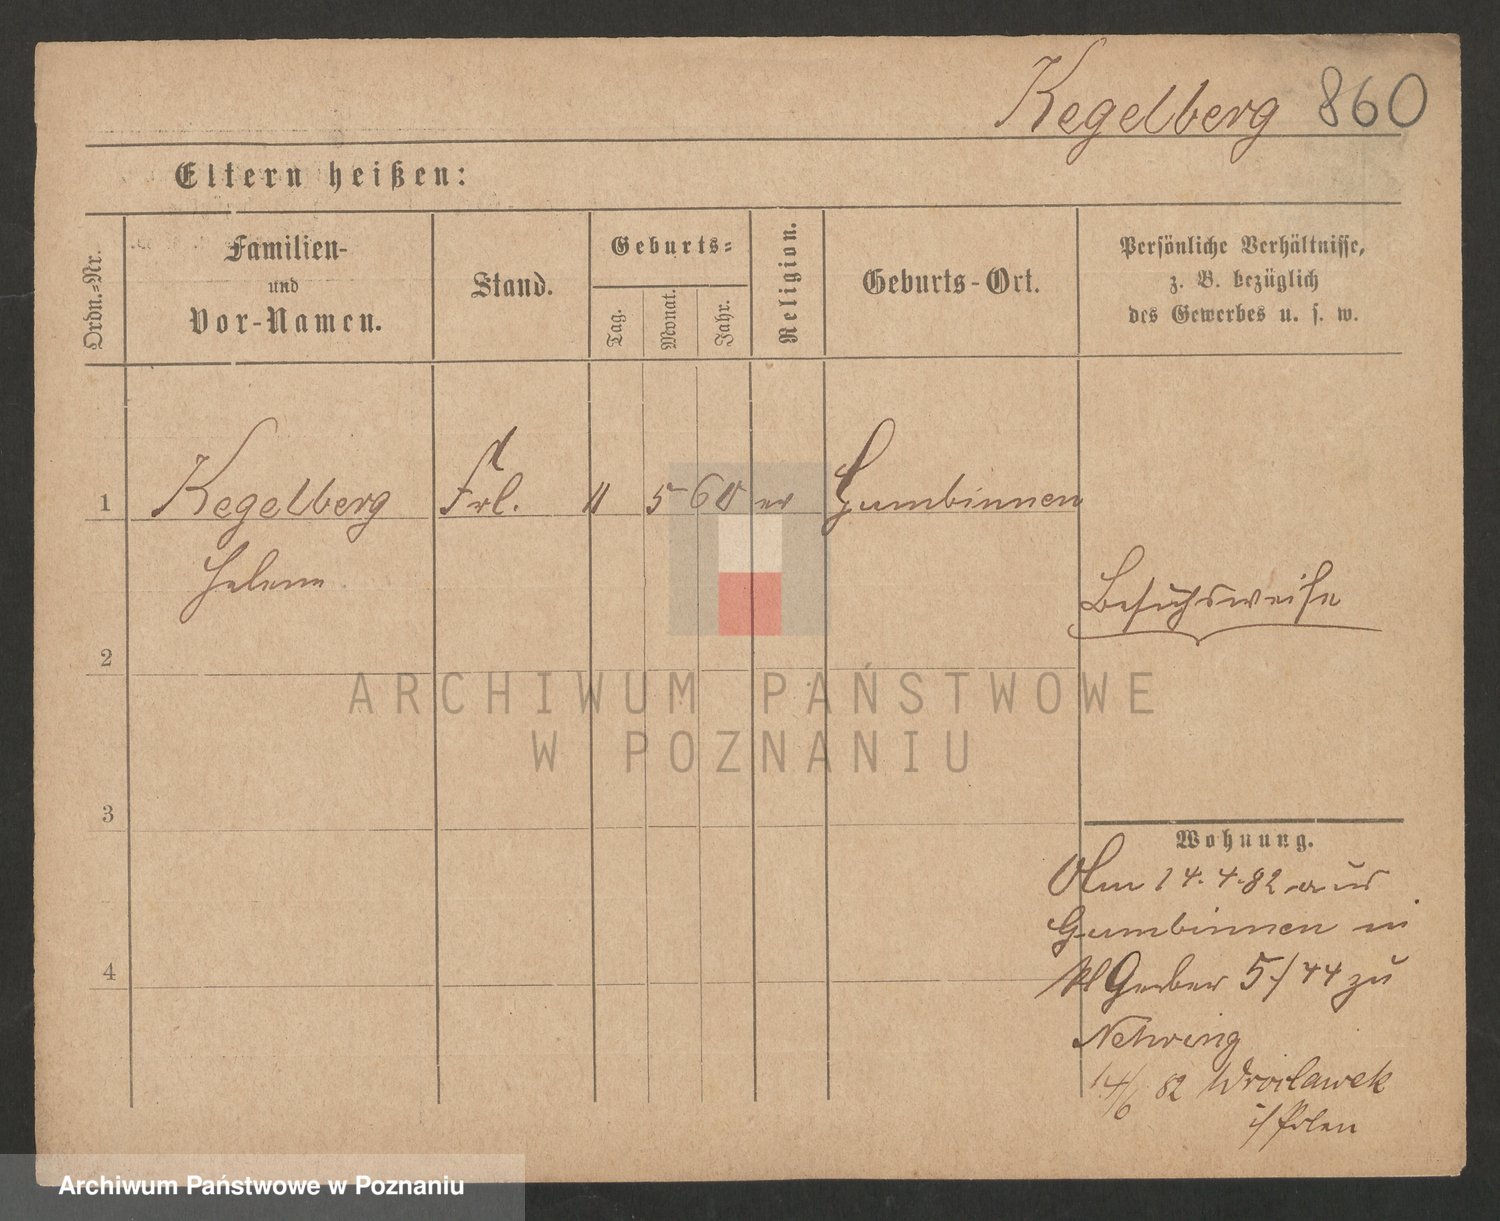 Kegelberg 860
Eltern heißen:
Ordn.=Nr.
Familien-
und
Vor-Namen.
Stand.
Geburts=
Tag.
Monat.
Jahr.
Religion.
Geburts-Ort.
Persönliche Verhältnisse,
z. B. bezüglich
des Gewerbes u. s. w.
1 Kegelberg Frl. 11 5 60 ev Gumbinnen
Helene
Besuchsweise
2
ARCHIWUM PAŃSTWOWE
W POZNANIU
3
Wohnung.
Am 14.4.82 aus
Gumbinnen in
Gerber 5/44 zu
4
Nehring
14/6 82 Wroclawek
i/Polen
Archiwum Państwowe w Poznaniu